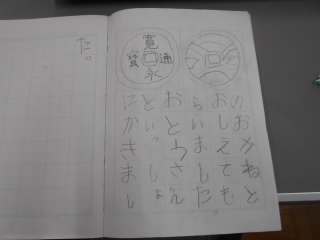 寛永通寳
のおかねと
おしえても
らいました
おとうさん
といっしょ
にかきまし
た。